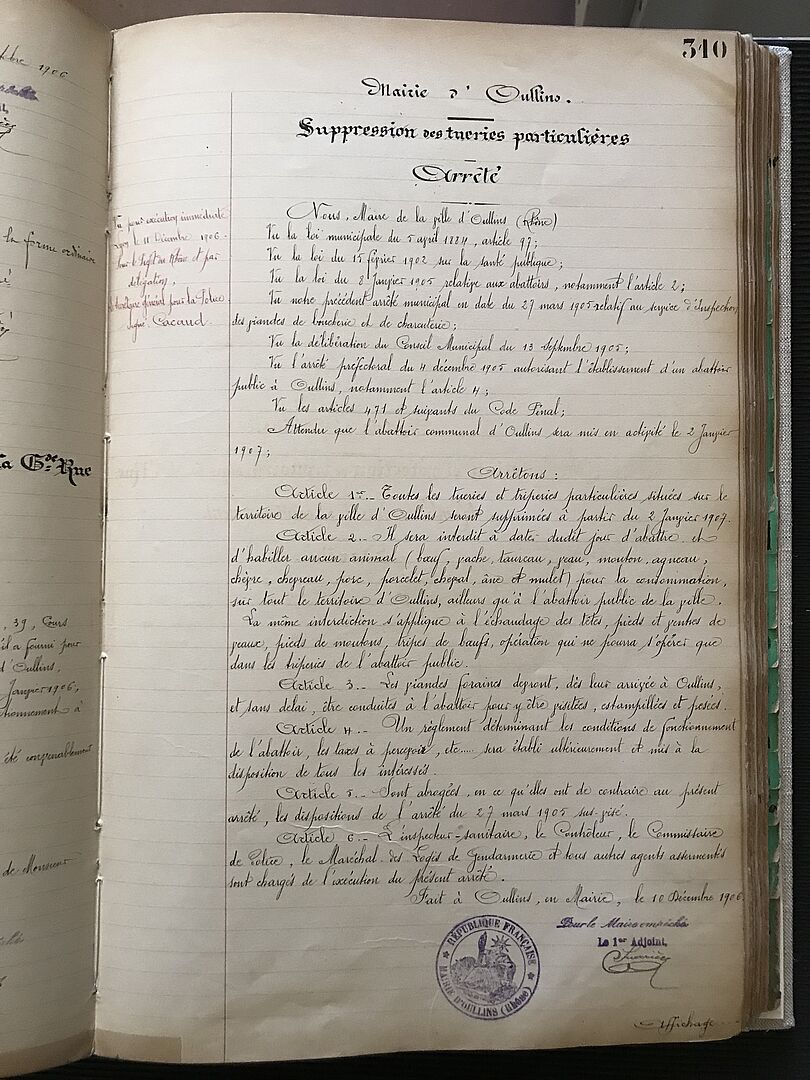 tbre 1906
la forme ordinaire
la Gde Rue
, 39, Cours
qu'il a fourni pour
d'Oullins,
Janvier 1906,
tionnement à
été convenablement
de Monsieur
340
Mairie d'Oullins.
Suppression des tueries particulières
Arrêté
Vu pour exécution immédiate
Lyon le 11 Décembre 1906.
Pour le Préfet du Rhône et par
délégation,
Le Secrétaire Général pour la Police
signé: Cacaud.
Nous, Maire de la ville d'Oullins (Rhône)
Vu la loi municipale du 5 avril 1884, article 97;
Vu la loi du 15 février 1902 sur la santé publique;
Vu la loi du 8 Janvier 1905 relative aux abattoirs, notamment l'article 2;
Vu notre précédent arrêté municipal en date du 27 mars 1905 relatif au service d'Inspection
des viandes de boucherie et de charcuterie;
Vu la délibération du Conseil Municipal du 13 Septembre 1905;
Vu l'arrêté préfectoral du 4 décembre 1905 autorisant l'établissement d'un abattoir
public à Oullins, notamment l'article 4;
Vu les articles 471 et suivants du Code Pénal;
Attendu que l'abattoir communal d'Oullins sera mis en activité le 2 Janvier
1907;
Arrêtons :
Article 1er._ Toutes les tueries et triperies particulières situées sur le
territoire de la ville d'Oullins seront supprimées à partir du 2 Janvier 1907.
Article 2._ Il sera interdit à dater dudit jour d'abattre et
d'habiller aucun animal (bœuf, vache, taureau, veau, mouton, agneau,
chèvre, chevreau, porc, porcelet, cheval, âne et mulet) pour la consommation,
sur tout le territoire d'Oullins, ailleurs qu'à l'abattoir public de la ville.
La même interdiction s'applique à l'échaudage des têtes, pieds et ventres de
veaux, pieds de moutons, tripes de bœufs, opération qui ne pourra s'opérer que
dans les triperies de l'abattoir public.
Article 3._ Les viandes foraines devront, dès leur arrivée à Oullins,
et sans délai, être conduites à l'abattoir pour y être visitées, estampillées et pesées.
Article 4._ Un règlement déterminant les conditions de fonctionnement
de l'abattoir, les taxes à percevoir, etc..... sera établi ultérieurement et mis à la
disposition de tous les intéressés.
Article 5._ Sont abrogées, en ce qu'elles ont de contraire au présent
arrêté, les dispositions de l'arrêté du 27 mars 1905 sus-visé.
Article 6._ L'inspecteur-sanitaire, le Contrôleur, le Commissaire
de Police, le Maréchal-des-Logis de Gendarmerie et tous autres agents assermentés
sont chargés de l'exécution du présent arrêté.
Fait à Oullins, en Mairie, le 10 Décembre 1906
Pour le Maire empêché
Le 1er Adjoint,
RÉPUBLIQUE FRANÇAISE
MAIRIE D'OULLINS (Rhône)
Affichage